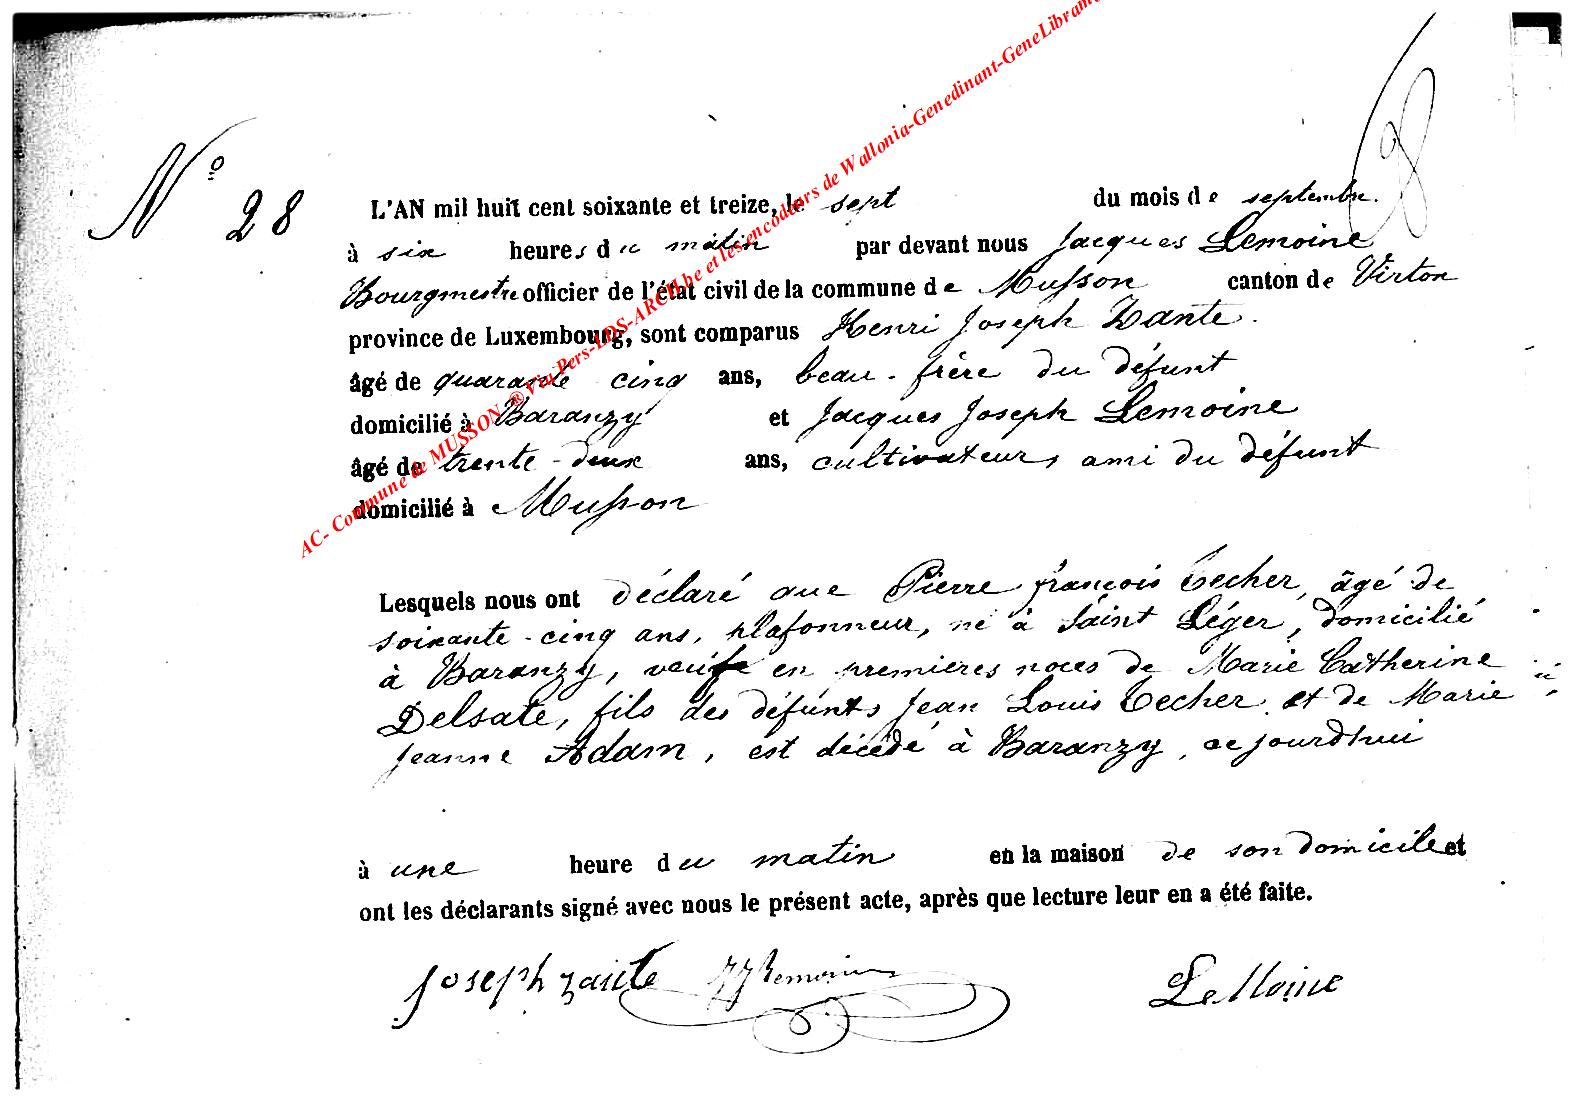 AC- Commune de MUSSON ®Via Pers-LDS-ARCH.be et les encodeurs de Wallonia-Genedinant-GeneLibramo
8
N° 28
L'AN mil huit cent soixante et treize, le sept du mois de septembre.
à six heures du matin par devant nous Jacques Lemoine
Bourgmestre officier de l'état civil de la commune de Musson canton de Virton
province de Luxembourg, sont comparus Henri Joseph Zante.
âgé de quarante cinq ans, beau-frère du défunt
domicilié à Baranzy et Jacques Joseph Lemoine
âgé de trente-deux ans, cultivateurs ami du défunt
domicilié à Musson
Lesquels nous ont déclaré que Pierre françois Techer, âgé de
soixante-cinq ans, plafonneur, né à Saint Léger, domicilié
à Baranzy, veuf en premières noces de Marie Catherine
Delsate, fils des défunts Jean Louis Techer et de Marie
Jeanne Adam, est décédé à Baranzy, cejourd'hui
à une heure du matin en la maison de son domicile et
ont les déclarants signé avec nous le présent acte, après que lecture leur en a été faite.
Joseph zante JJ Lemoine LeMoine